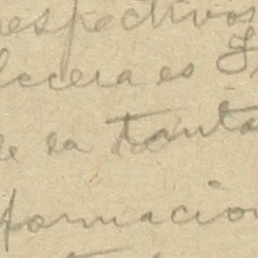 respectivos
lecera es
de la Tanta
formacion